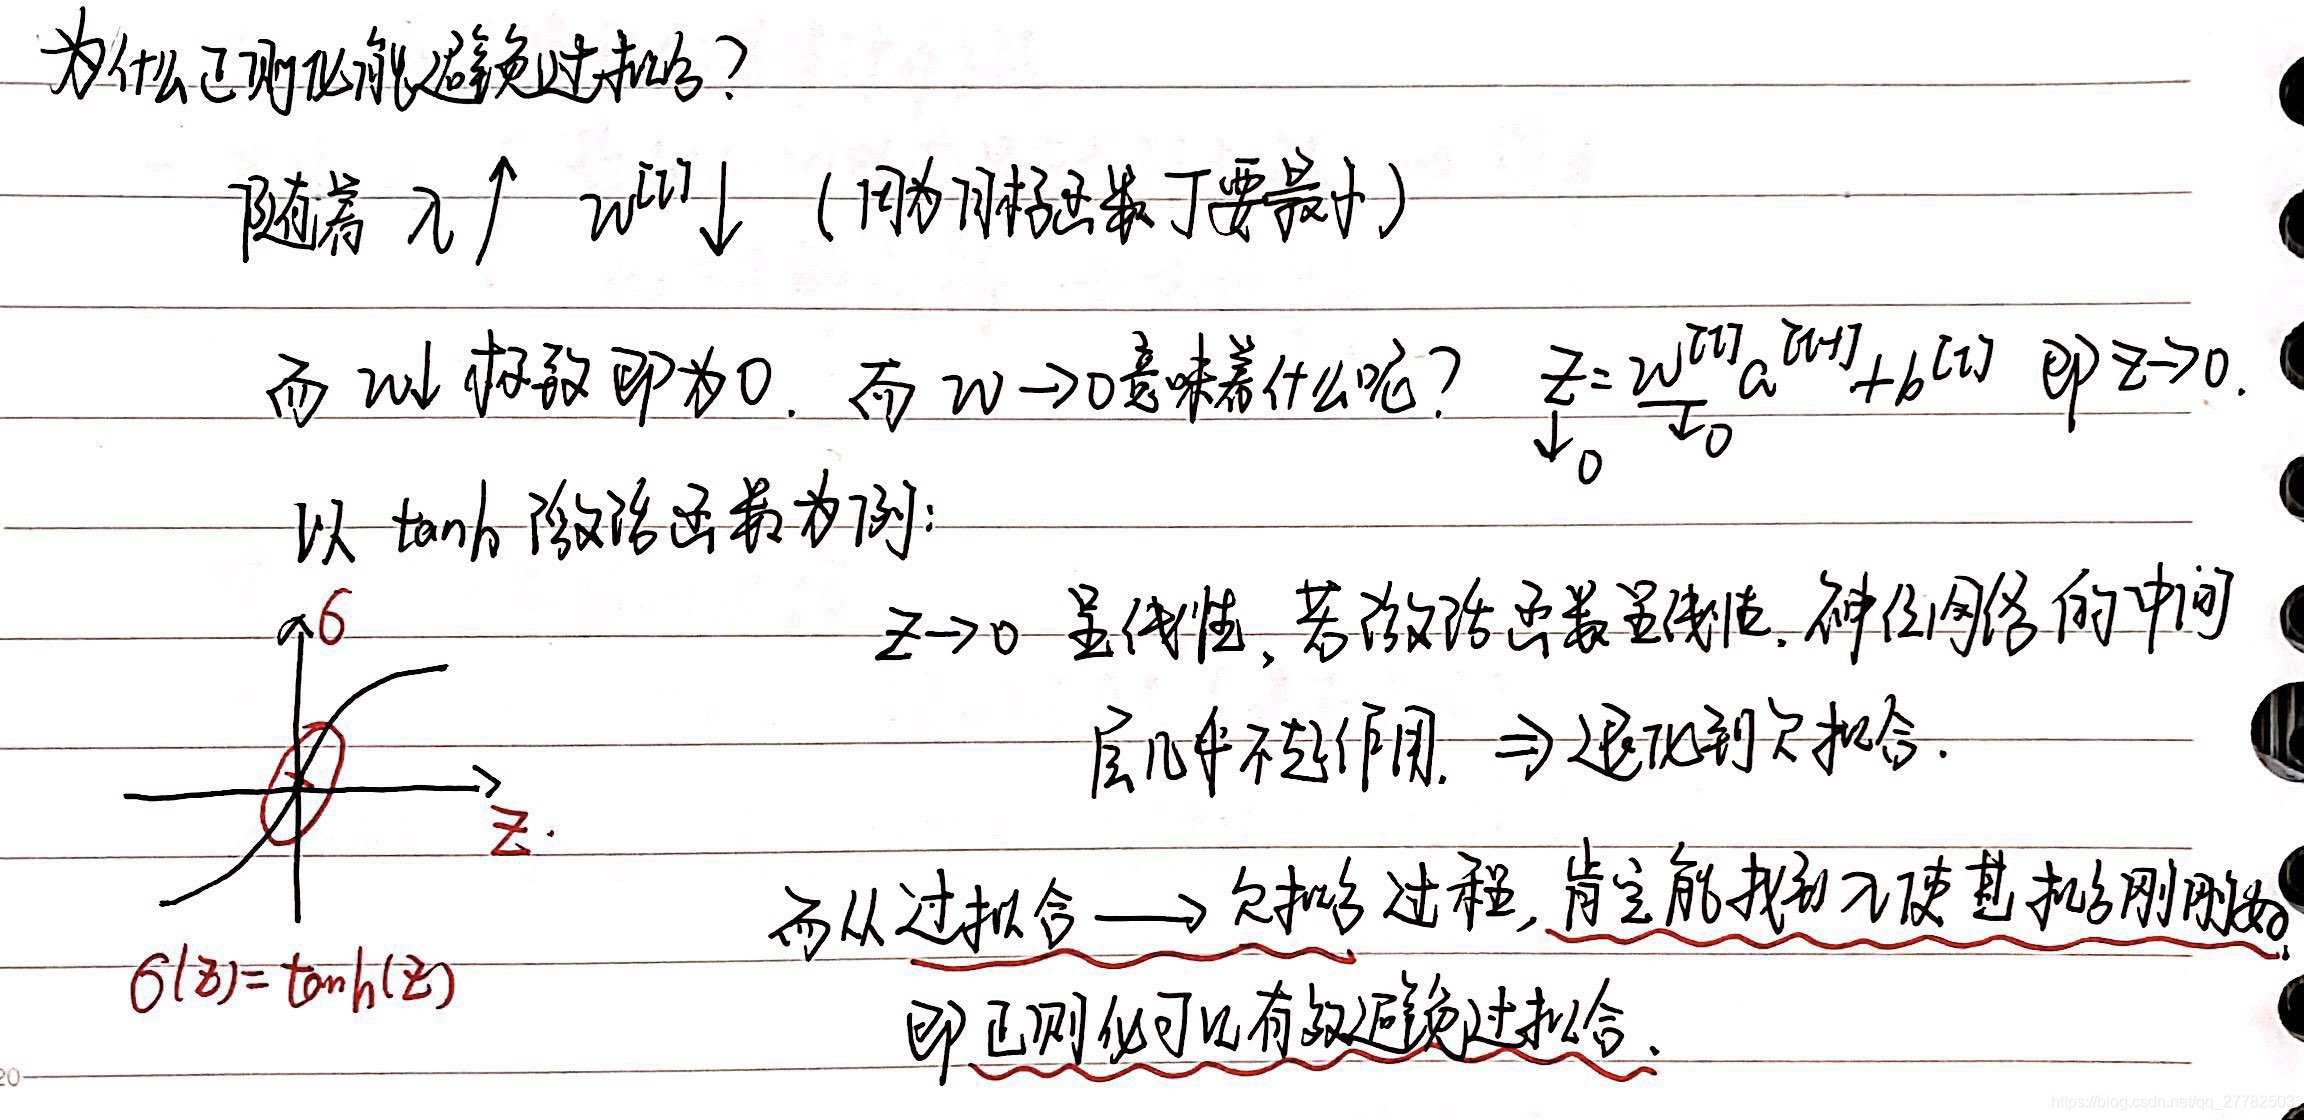 为什么正则化能避免过拟合?
随着 λ↑ w^[l]↓ (因为目标函数J要最小)
而 w↓ 极致即为0. 而 w→0意味着什么呢? z=w^[l]a^[l-1]+b^[l] 即 z→0.
↓0 ↓0
以 tanh 激活函数为例:
σ
z→0 呈线性, 若激活函数呈线性, 神经网络的中间
层几乎不起作用. ⇒退化到欠拟合.
z.
而从过拟合→欠拟合过程, 肯定能找到λ使其拟合刚刚好.
σ(z)=tanh(z)
即正则化可以有效避免过拟合.
20
https://blog.csdn.net/qq_27782503